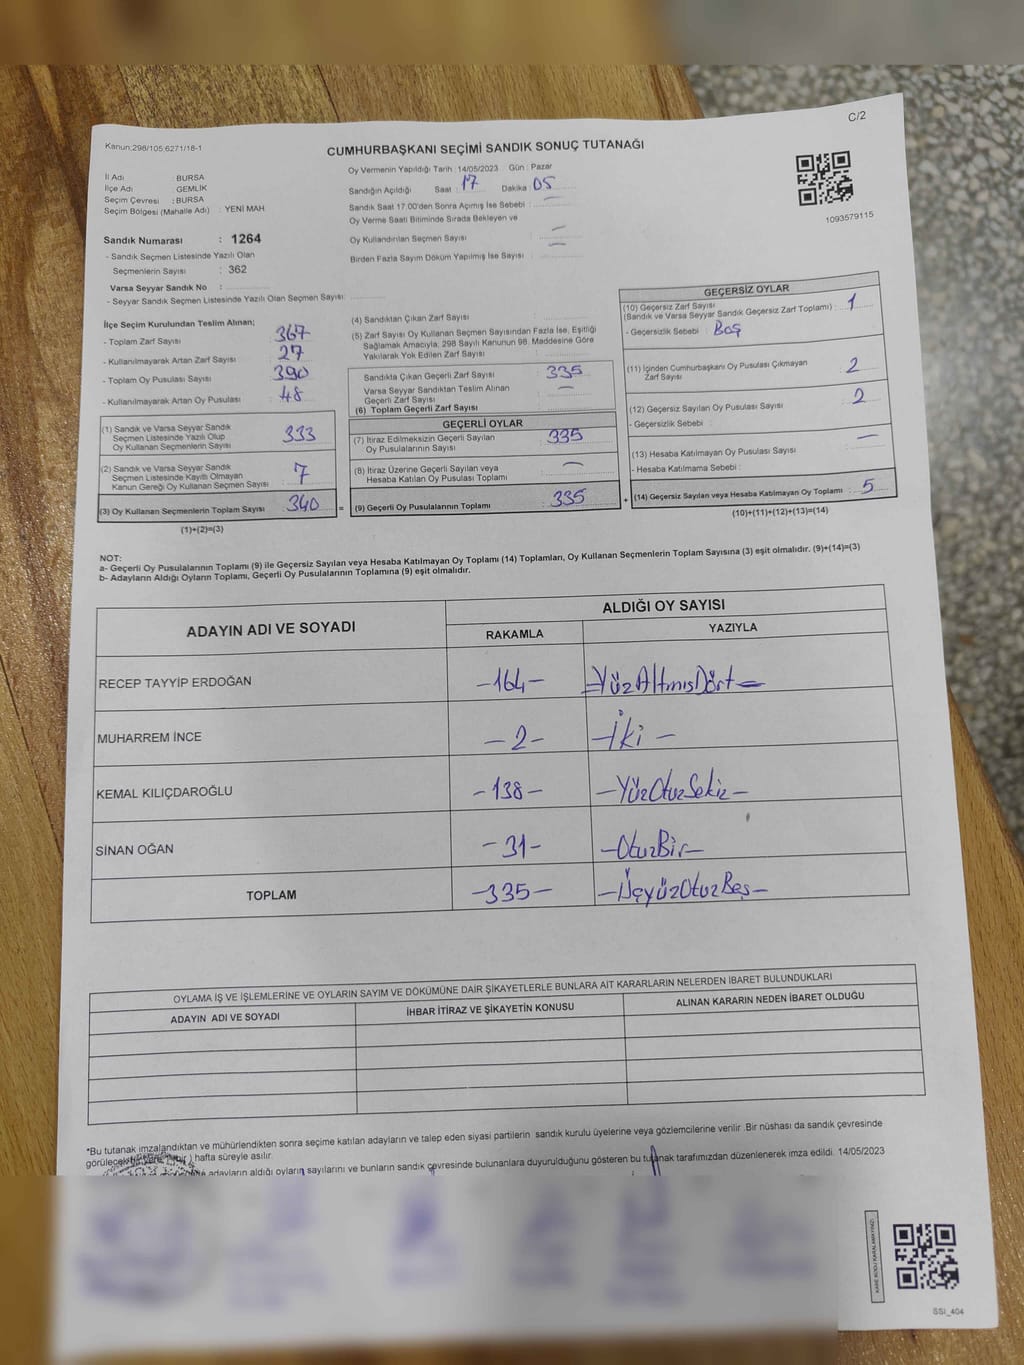 C/2
Kanun:298/105;6271/18-1
CUMHURBAŞKANI SEÇİMİ SANDIK SONUÇ TUTANAĞI
İl Adı : BURSA
İlçe Adı : GEMLİK
Seçim Çevresi : BURSA
Seçim Bölgesi (Mahalle Adı) : YENİ MAH
Oy Vermenin Yapıldığı Tarih : 14/05/2023 Gün : Pazar
Sandığın Açıldığı Saat : 17 Dakika : 05
Sandık Saat 17.00'den Sonra Açımış İse Sebebi : —
Oy Verme Saati Bitiminde Sırada Bekleyen ve
Oy Kullandırılan Seçmen Sayısı : —
Birden Fazla Sayım Döküm Yapılmış İse Sayısı : —
1093579115
Sandık Numarası : 1264
- Sandık Seçmen Listesinde Yazılı Olan
Seçmenlerin Sayısı : 362
Varsa Seyyar Sandık No :
- Seyyar Sandık Seçmen Listesinde Yazılı Olan Seçmen Sayısı:
İlçe Seçim Kurulundan Teslim Alınan;
- Toplam Zarf Sayısı : 367
- Kullanılmayarak Artan Zarf Sayısı : 27
- Toplam Oy Pusulası Sayısı : 390
- Kullanılmayarak Artan Oy Pusulası : 48
(1) Sandık ve Varsa Seyyar Sandık
Seçmen Listesinde Yazılı Olup
Oy Kullanan Seçmenlerin Sayısı : 333
(2) Sandık ve Varsa Seyyar Sandık
Seçmen Listesinde Kayıtlı Olmayan
Kanun Gereği Oy Kullanan Seçmen Sayısı : 7
(3) Oy Kullanan Seçmenlerin Toplam Sayısı : 340
(1)+(2)=(3)
(4) Sandıktan Çıkan Zarf Sayısı :
(5) Zarf Sayısı Oy Kullanan Seçmen Sayısından Fazla İse, Eşitliği
Sağlamak Amacıyla; 298 Sayılı Kanunun 98. Maddesine Göre
Yakılarak Yok Edilen Zarf Sayısı :
Sandıkta Çıkan Geçerli Zarf Sayısı : 335
Varsa Seyyar Sandıktan Teslim Alınan
Geçerli Zarf Sayısı : —
(6) Toplam Geçerli Zarf Sayısı :
GEÇERLİ OYLAR
(7) İtiraz Edilmeksizin Geçerli Sayılan
Oy Pusulalarının Sayısı : 335
(8) İtiraz Üzerine Geçerli Sayılan veya
Hesaba Katılan Oy Pusulası Toplamı : —
= (9) Geçerli Oy Pusulalarının Toplamı : 335
GEÇERSİZ OYLAR
(10) Geçersiz Zarf Sayısı
(Sandık ve Varsa Seyyar Sandık Geçersiz Zarf Toplamı) : 1
- Geçersizlik Sebebi : Boş
(11) İçinden Cumhurbaşkanı Oy Pusulası Çıkmayan
Zarf Sayısı : 2
(12) Geçersiz Sayılan Oy Pusulası Sayısı : 2
- Geçersizlik Sebebi :
(13) Hesaba Katılmayan Oy Pusulası Sayısı : —
- Hesaba Katılmama Sebebi :
+ (14) Geçersiz Sayılan veya Hesaba Katılmayan Oy Toplamı : 5
(10)+(11)+(12)+(13)=(14)
NOT:
a- Geçerli Oy Pusulalarının Toplamı (9) ile Geçersiz Sayılan veya Hesaba Katılmayan Oy Toplamı (14) Toplamları, Oy Kullanan Seçmenlerin Toplam Sayısına (3) eşit olmalıdır. (9)+(14)=(3)
b- Adayların Aldığı Oyların Toplamı, Geçerli Oy Pusulalarının Toplamına (9) eşit olmalıdır.
ADAYIN ADI VE SOYADI
ALDIĞI OY SAYISI
RAKAMLA YAZIYLA
RECEP TAYYİP ERDOĞAN -164- =YüzAltmışDört=
MUHARREM İNCE -2- -İki-
KEMAL KILIÇDAROĞLU -138- -YüzOtuzSekiz-
SİNAN OĞAN -31- -OtuzBir-
TOPLAM -335- -ÜçyüzOtuzBeş-
OYLAMA İŞ VE İŞLEMLERİNE VE OYLARIN SAYIM VE DÖKÜMÜNE DAİR ŞİKAYETLERLE BUNLARA AİT KARARLARIN NELERDEN İBARET BULUNDUKLARI
ADAYIN ADI VE SOYADI İHBAR İTİRAZ VE ŞİKAYETİN KONUSU ALINAN KARARIN NEDEN İBARET OLDUĞU
*Bu tutanak imzalandıktan ve mühürlendikten sonra seçime katılan adayların ve talep eden siyasi partilerin sandık kurulu üyelerine veya gözlemcilerine verilir .Bir nüshası da sandık çevresinde
hafta süreyle asılır.
adayların aldığı oyların sayılarını ve bunların sandık çevresinde bulunanlara duyurulduğunu gösteren bu tutanak tarafımızdan düzenlenerek imza edildi. 14/05/2023
KARE KODU KARALAMAYINIZ!
SSI_404